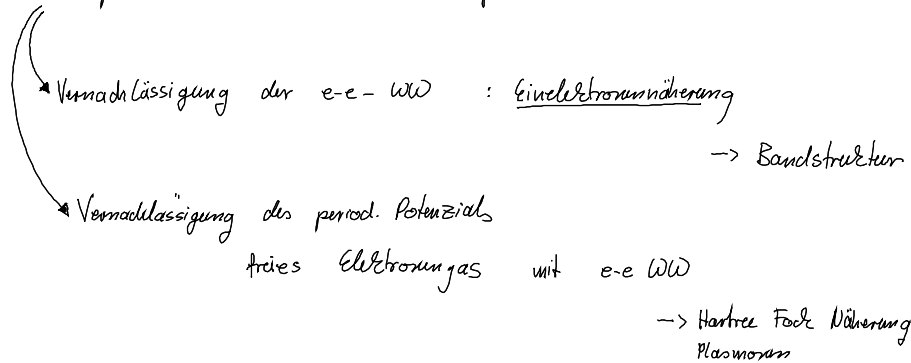 Vernachlässigung der e-e-WW : Einelektronennäherung
-> Bandstruktur
Vernachlässigung des period. Potenzials
freies Elektronengas mit e-e WW
-> Hartree Fock Näherung
Plasmonen